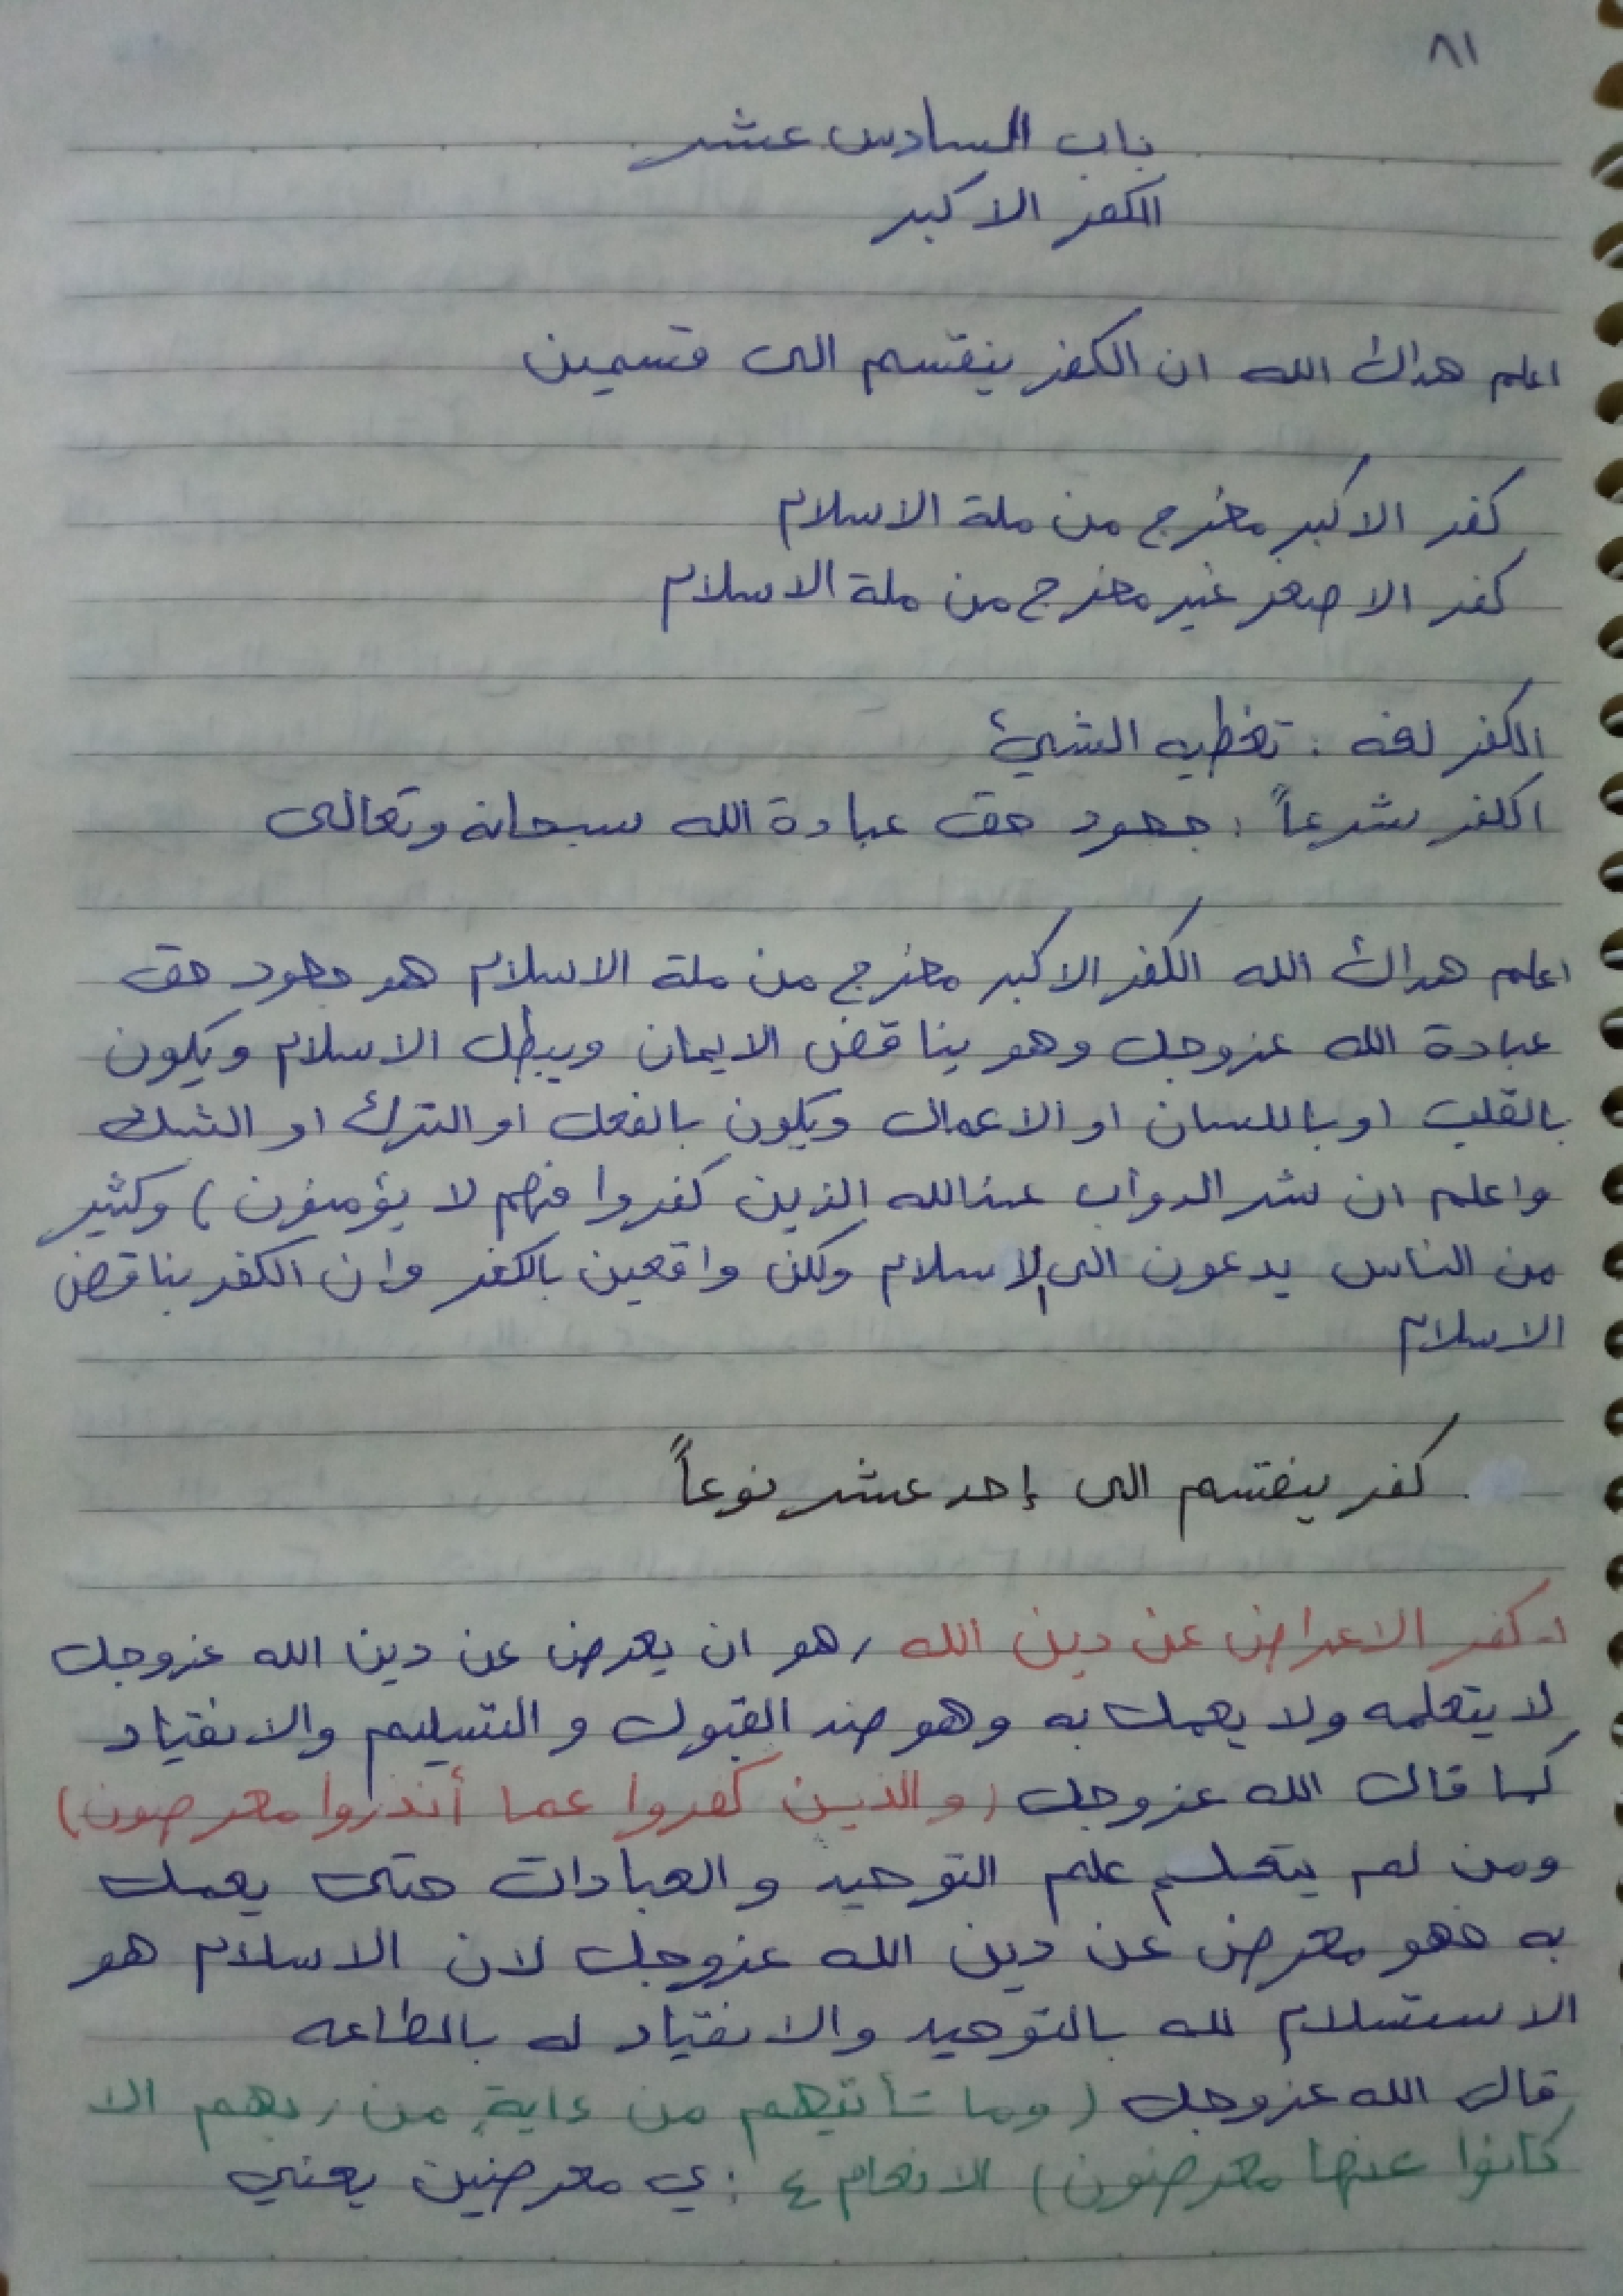 ٨١
باب السادس عشر
الكفر الاكبر
اعلم هداك الله ان الكفر ينقسم الى قسمين
كفر الاكبر مخرج من ملة الاسلام
كفر الاصغر غير مخرج من ملة الاسلام
الكفر لغه : تغطيه الشيئ
الكفر شرعاً : جحود حق عبادة الله سبحانه وتعالى
اعلم هداك الله الكفر الاكبر مخرج من ملة الاسلام هو جحود حق
عبادة الله عزوجل وهو يناقض الايمان ويبطل الاسلام ويكون
بالقلب او باللسان او الاعمال ويكون بالفعل او الترك او الشك
واعلم ان شر الدوأب عندالله الذين كفروا فهم لا يؤمنون ) وكثير
من الناس يدعون الى الاسلام ولكن واقعين بالكفر وان الكفر يناقض
الاسلام
كفر ينقسم الى إحد عشر نوعاً
١ـ كفر الاعراض عن دين الله , هو ان يعرض عن دين الله عزوجل
لا يتعلمه ولا يعمل به وهو ضد القبول و التسليم والانقياد
كما قال الله عزوجل ( والذين كفروا عما أنذروا معرضون )
ومن لم يتعلم علم التوحيد والعبادات حتى يعمل
به فهو معرض عن دين الله عزوجل لان الاسلام هو
الاستسلام لله بالتوحيد والانقياد له بالطاعه
قال الله عزوجل ( وما تأتيهم من ءاية من ربهم الا
كانوا عنها معرضون ) الانعام ٤ : ي معرضين يعني